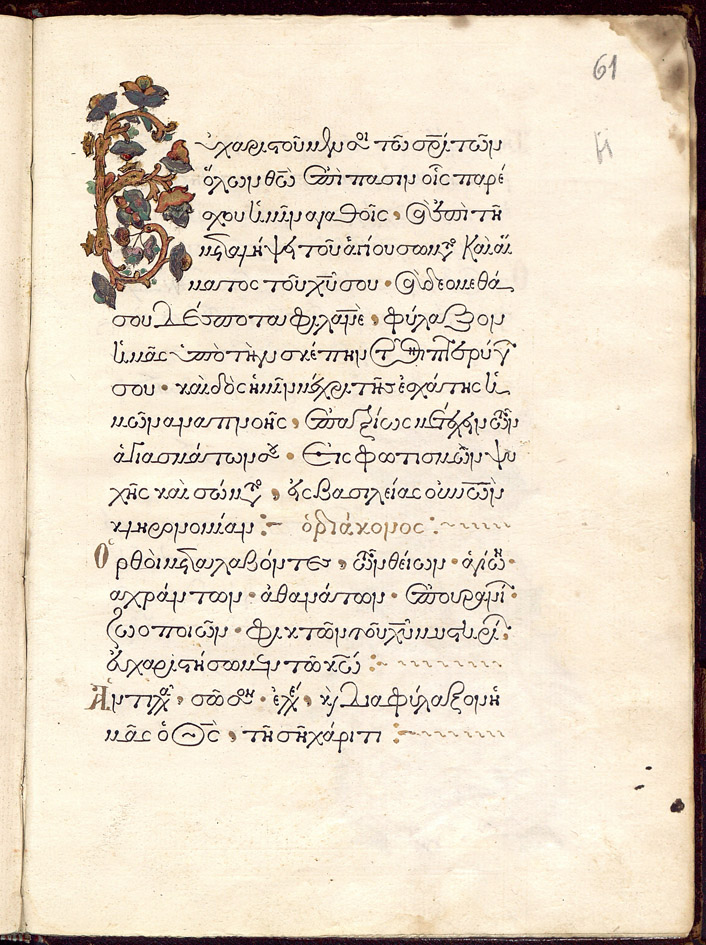 Εὐχαριστοῦμέν σοι τῶ σρ̅ι τῶν
ὅλων θω̅ ἐπὶ πᾶσιν οἷς παρέ
σχου ἡμῖν ἀγαθοῖς, καὶ ἐπὶ τῆ
μεταλήψει τοῦ ἁγίου σώματος καὶ αἵ
ματος τοῦ χυ̅ σου · καὶ δεόμεθά
σου Δέσποτα φιλάνε̅, φύλαξον
ἡμᾶς ὑπὸ τὴν σκέπην τῶν πτερύγων
σου · καὶ δὸς ἡμῖν μέχρι τῆς ἐσχάτης ἡ
μῶν ἀναπνοῆς, ἐπαξίως μετέχειν τῶν
ἁγιασμάτων σου · Εἰς φωτισμὸν ψυ
χῆς καὶ σώματος, εἰς βασιλείας οὐνῶν
κληρονομίαν :– ὁ διάκονος :~
Ὀρθοὶ μεταλαβόντες, τῶν θείων · ἁγίων ·
ἀχράντων · ἀθανάτων · ἐπουρανί ·
ζωοποιῶν · φρικτῶν τοῦ χυ̅ μυστηρί ·
εὐχαριστήσωμεν τῶ κω̅ :~
Ἀντιλα, σῶσον · ἐλέη, καὶ Διαφύλαξον ἡ
μᾶς ὁ Θς̅, τῆ σῆ χάριτι :~